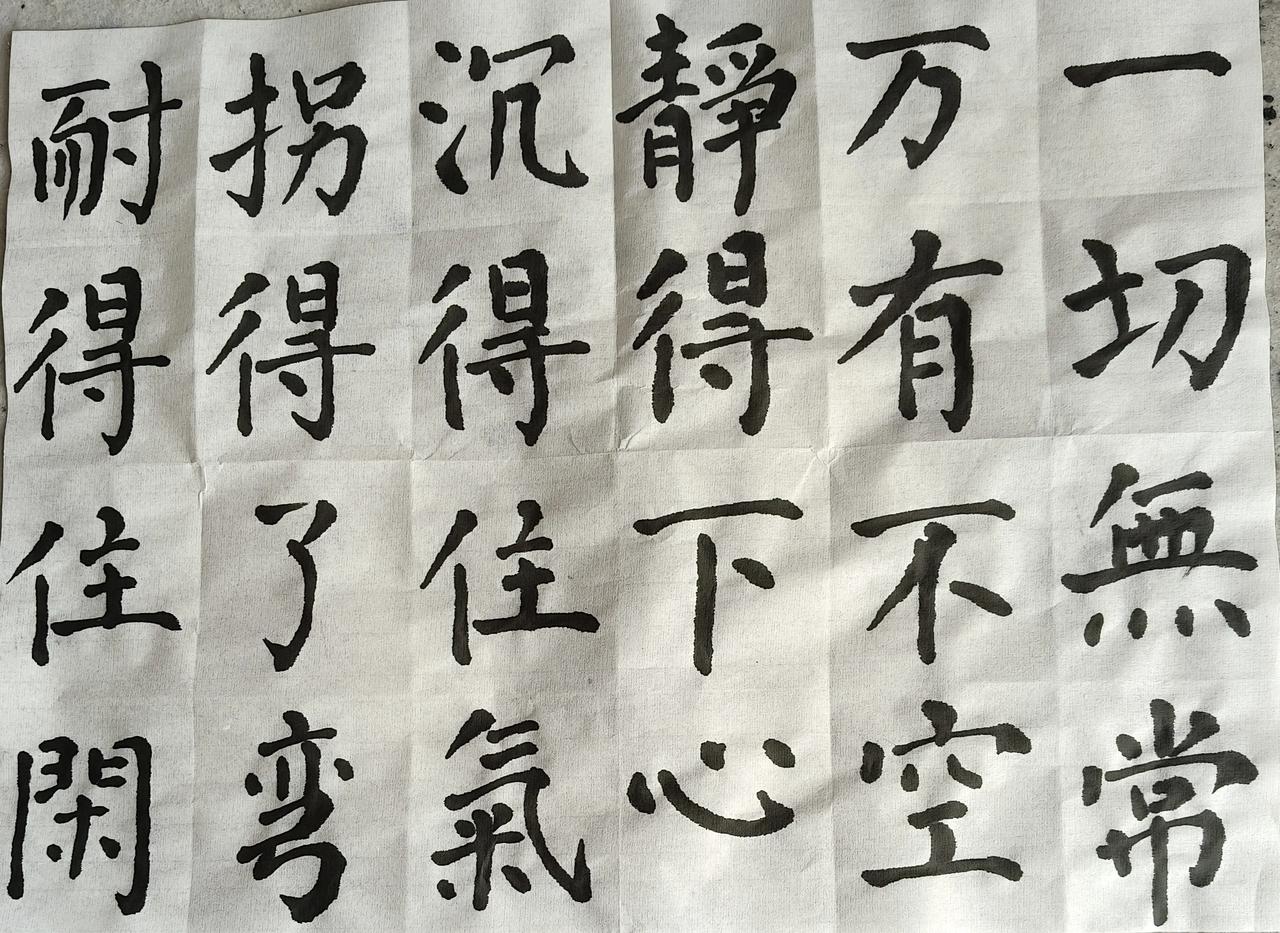 一切無常
万有不空
靜得下心
沉得住氣
拐得了弯
耐得住閑